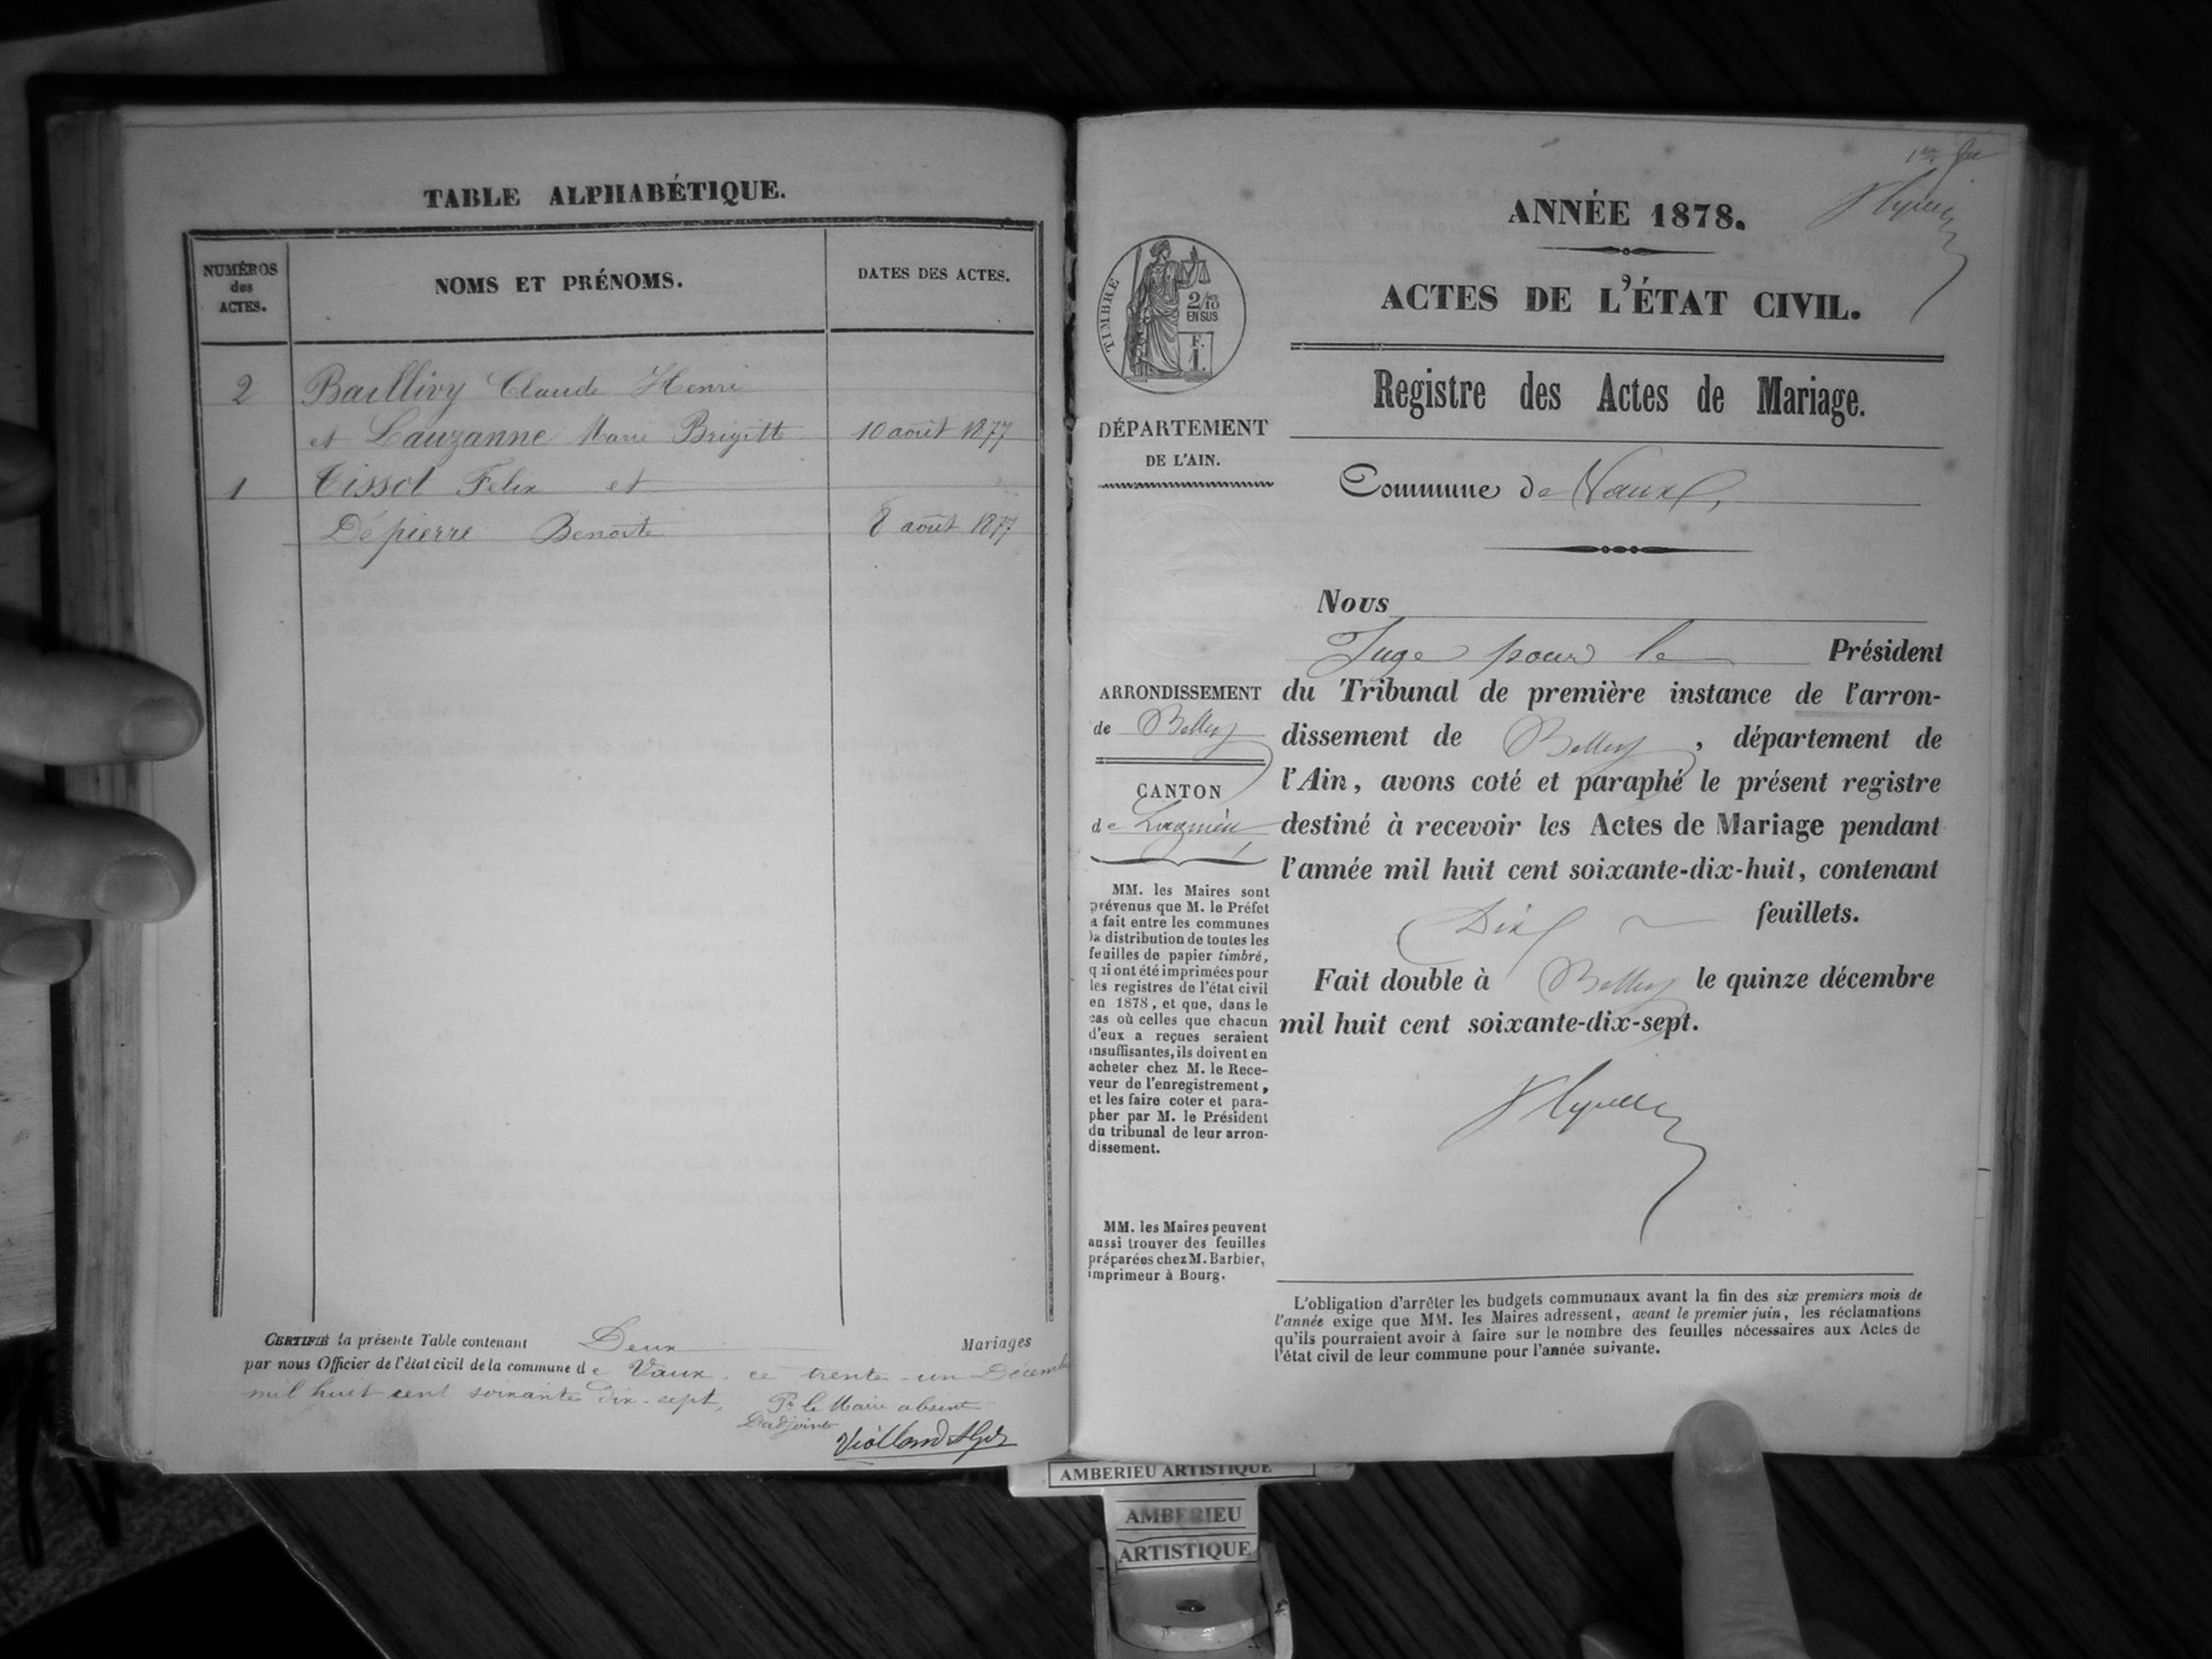 TABLE ALPHABÉTIQUE.
NUMÉROS
des
ACTES.
NOMS ET PRÉNOMS.
DATES DES ACTES.
2 Baillivy Claude Henri
et Lauzanne Marie Brigitte 10 août 1877
1 Tissot Felix et
Dépierre Benoite 8 août 1877
CERTIFIÉ la présente Table contenant Deux Mariages
par nous Officier de l'état civil de la commune de Vaux, ce trente-un Décembre
mil huit cent soixante dix-sept, Pr le Maire absent
L'adjoint
1er
ANNÉE 1878.
ACTES DE L'ÉTAT CIVIL.
TIMBRE
2/10
EN SUS
F.
1.
Registre des Actes de Mariage.
DÉPARTEMENT
DE L'AIN.
Commune de Vaux,
ARRONDISSEMENT
de Belley
CANTON
de Lagnieu
MM. les Maires sont
prévenus que M. le Préfet
a fait entre les communes
la distribution de toutes les
feuilles de papier timbré,
qui ont été imprimées pour
les registres de l'état civil
en 1878, et que, dans le
cas où celles que chacun
d'eux a reçues seraient
insuffisantes, ils doivent en
acheter chez M. le Rece-
veur de l'enregistrement,
et les faire coter et para-
pher par M. le Président
du tribunal de leur arron-
dissement.
MM. les Maires peuvent
aussi trouver des feuilles
préparées chez M. Barbier,
imprimeur à Bourg.
Nous
Juge pour le Président
du Tribunal de première instance de l'arron-
dissement de Belley, département de
l'Ain, avons coté et paraphé le présent registre
destiné à recevoir les Actes de Mariage pendant
l'année mil huit cent soixante-dix-huit, contenant
Dix feuillets.
Fait double à Belley le quinze décembre
mil huit cent soixante-dix-sept.
L'obligation d'arrêter les budgets communaux avant la fin des six premiers mois de
l'année exige que MM. les Maires adressent, avant le premier juin, les réclamations
qu'ils pourraient avoir à faire sur le nombre des feuilles nécessaires aux Actes de
l'état civil de leur commune pour l'année suivante.
AMBERIEU ARTISTIQUE
AMBERIEU
ARTISTIQUE